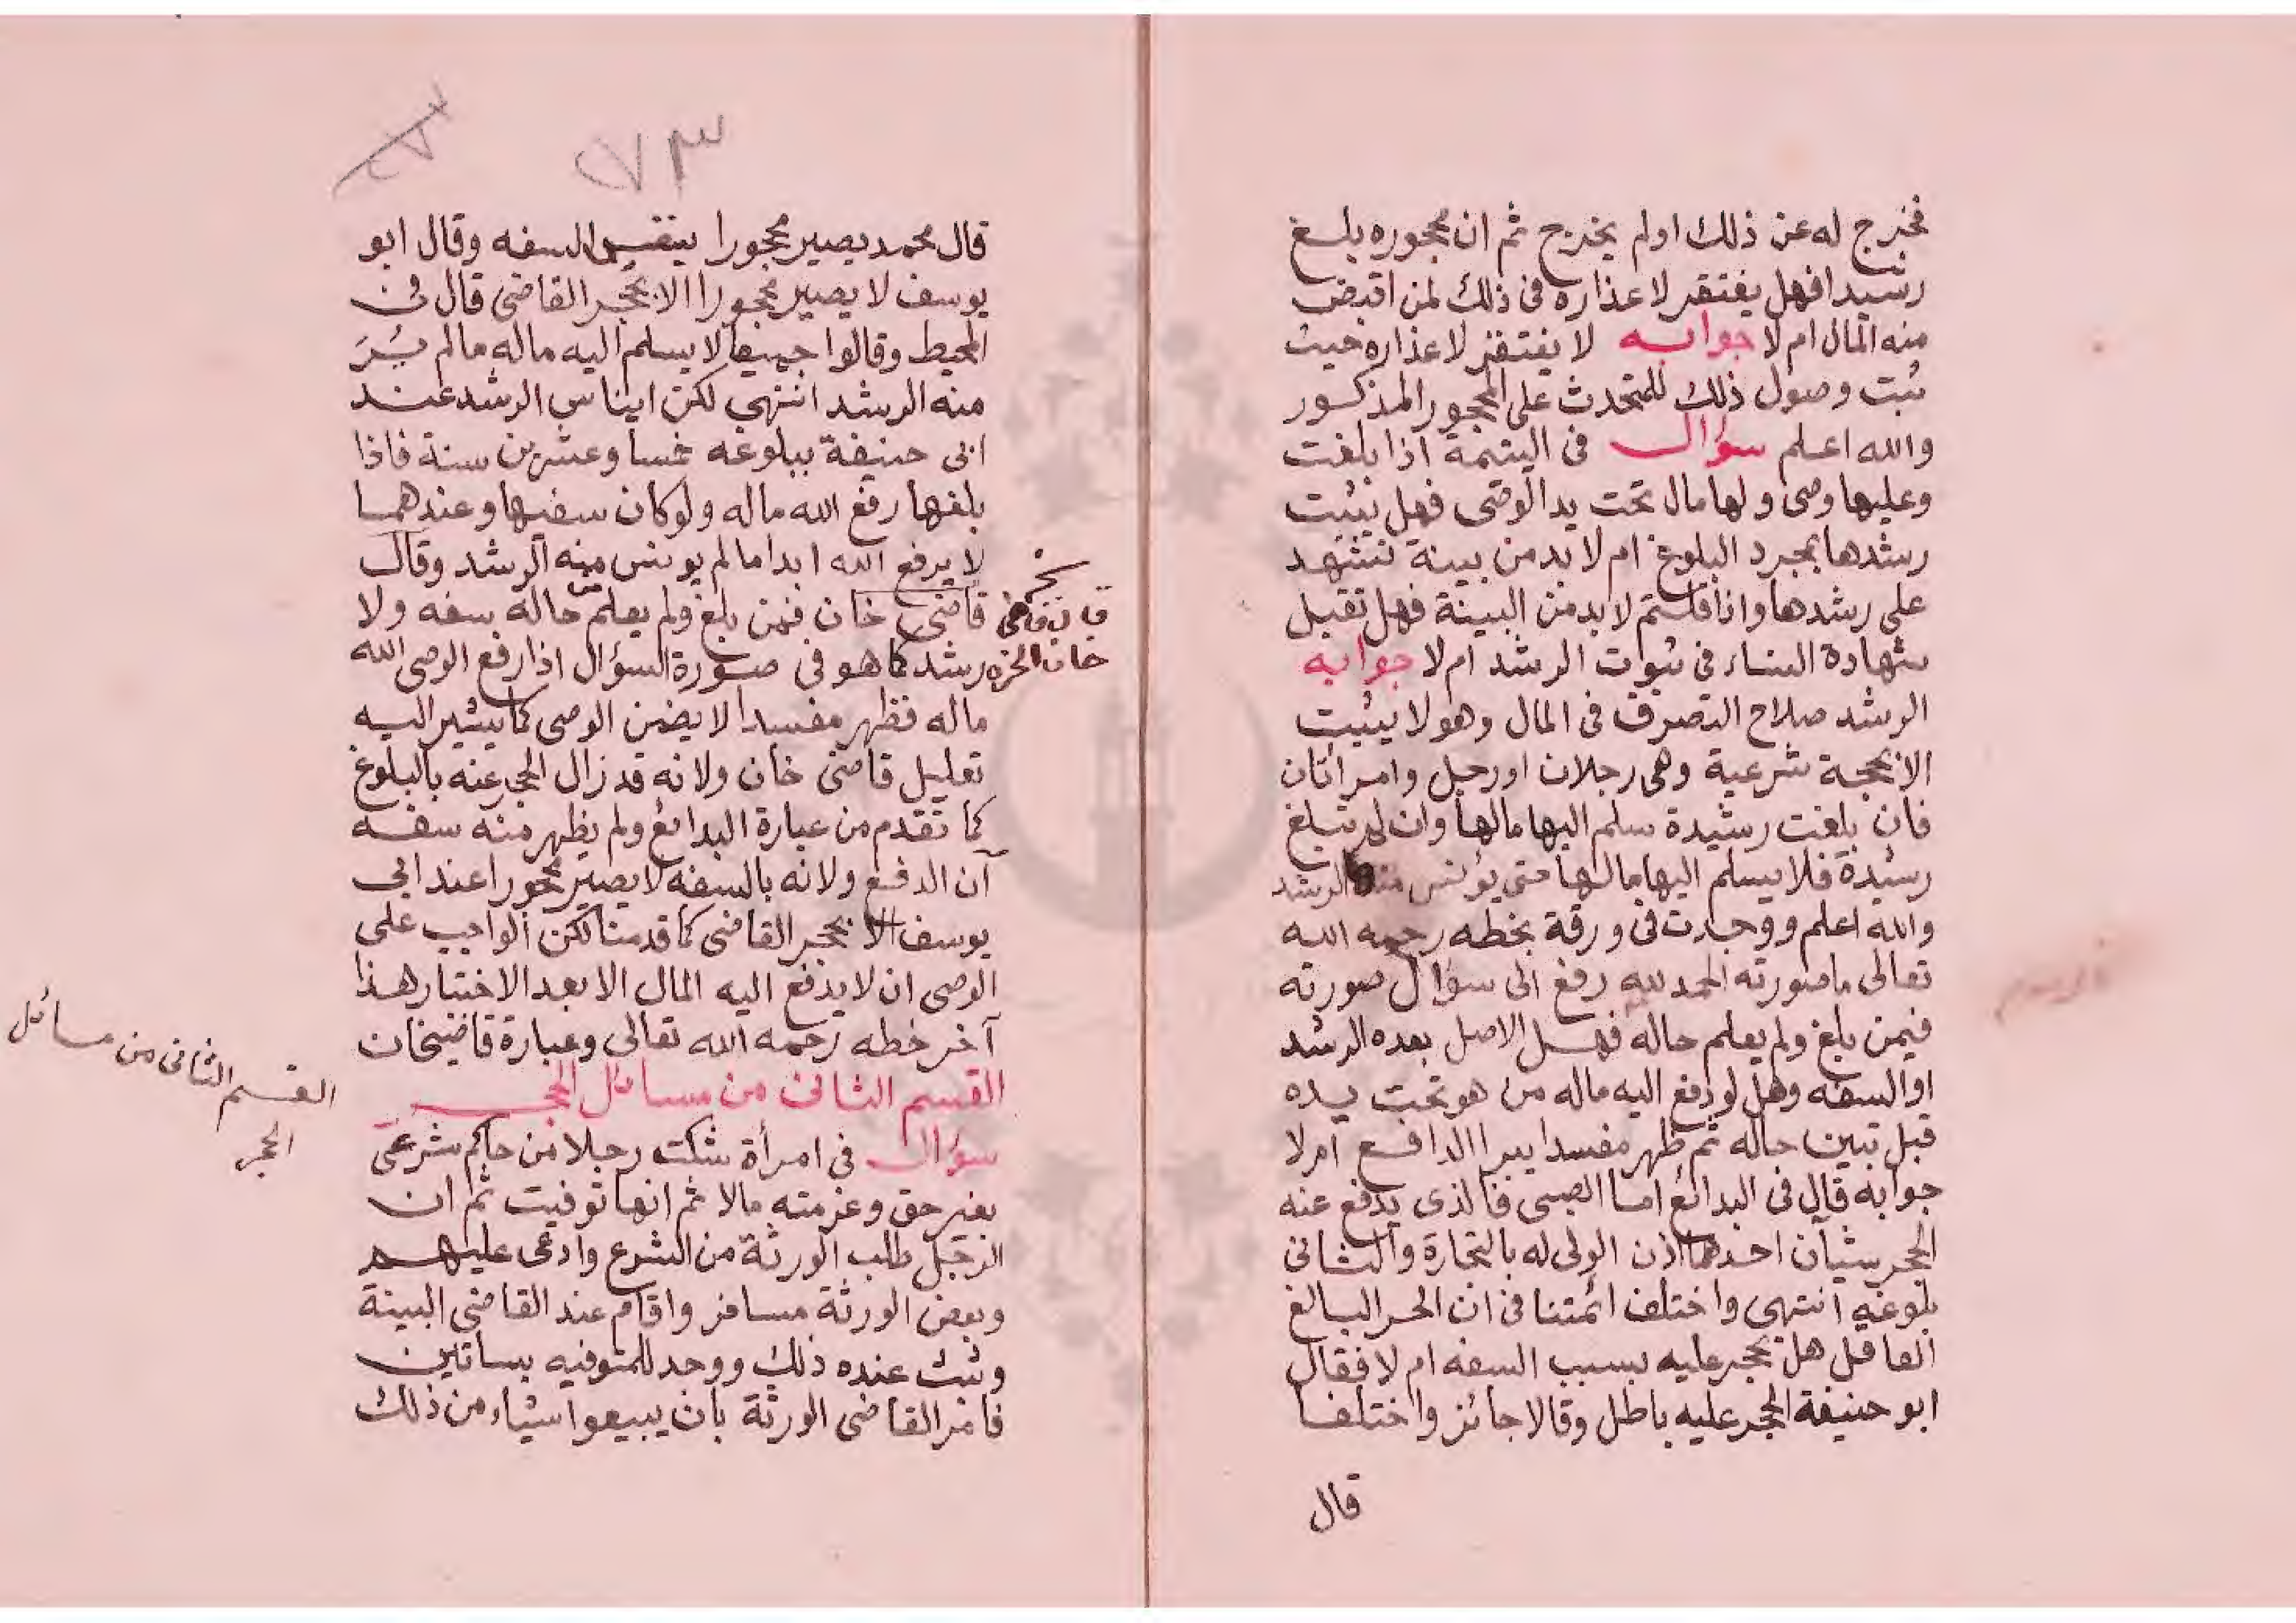 فخرج له عن ذلك اولم يخرج ثم ان محجوره بلغ
رشيدا فهل يفتقر لاعذاره فى ذلك لمن اقبض
منه المال ام لا جوابه لا يفتقر لاعذاره حيث
ثبت وصول ذلك للمتحدث على المحجور المذكور
والله اعلم سؤال فى اليتيمة اذا بلغت
وعليها وصى ولها مال تحت يد الوصى فهل يثبت
رشدها بمجرد البلوغ ام لا بد من بينة تشهد
على رشدها واذا قلتم لا بد من البينة فهل تقبل
شهادة النساء فى ثبوت الرشد ام لا جوابه
الرشد صلاح التصرف فى المال وهو لا يثبت
الا بحجة شرعية وهى رجلان او رجل وامراتان
فان بلغت رشيدة سلم اليها مالها وان لم تبلغ
رشيدة فلا يسلم اليها مالها حتى يؤنس منها الرشد
والله اعلم ووجدت فى ورقة بخطه رحمه الله
تعالى ما صورته الحمد لله رفع الى سؤال صورته
فيمن بلغ ولم يعلم حاله فهل الاصل بعده الرشد
او السفه وهل لو دفع اليه ماله من هو تحت يده
قبل تبين حاله ثم ظهر مفسدا يبرا الدافع ام لا
جوابه قال فى البدائع اما الصبى فالذى يدفع عنه
الحجر شيآن احدهما اذن الولى له بالتجارة والثانى
بلوغه انتهى واختلف ائمتنا فى ان الحر البالغ
العاقل هل يحجر عليه بسبب السفه ام لا فقال
ابو حنيفة الحجر عليه باطل وقالا جائز واختلفا
قال
٧٣
قال محمد يصير محجورا بنفس السفه وقال ابو
يوسف لا يصير محجورا الا بحجر القاضى قال فى
المحيط وقالوا جميعا لا يسلم اليه ماله مالم يُرَ
منه الرشد انتهى لكن ايناس الرشد عند
ابى حنيفة ببلوغه خمسا وعشرين سنة فاذا
بلغها رفع الله ماله ولو كان سفيها وعندهما
لا يرفع الله ابدا مالم يونس منه الرشد وقال
قاضى خان فمن بلغ ولم يعلم من حاله سفه ولا
رشد كما هو فى صورة السؤال اذا رفع الوصى الله
ماله فظهر مفسدا لا يضمن الوصى كما يشير اليه
تعليل قاضى خان ولانه قد زال الحجر عنه بالبلوغ
كما تقدم من عبارة البدائع ولم يظهر منه سفه
آن الدفع ولانه بالسفه لا يصير محجورا عند ابى
يوسف الا بحجر القاضى كما قدمنا لكن الواجب على
الوصى ان لا يدفع اليه المال الا بعد الاختبار هذا
آخر خطه رحمه الله تعالى وعبارة قاضيخان
القسم الثانى من مسائل الحجر
سؤال فى امرأة شكت رجلا من حاكم شرعى
بغير حق وغرمته مالا ثم انها توفيت ثم ان
الرجل طلب الورثة من الشرع وادعى عليهم
وبعض الورثة مسافر واقام عند القاضى البينة
وثبت عنده ذلك ووجد للمتوفيه بساتين
فامر القاضى الورثة بان يبيعوا شياء من ذلك
القسم الثانى من مسائل
الحجر